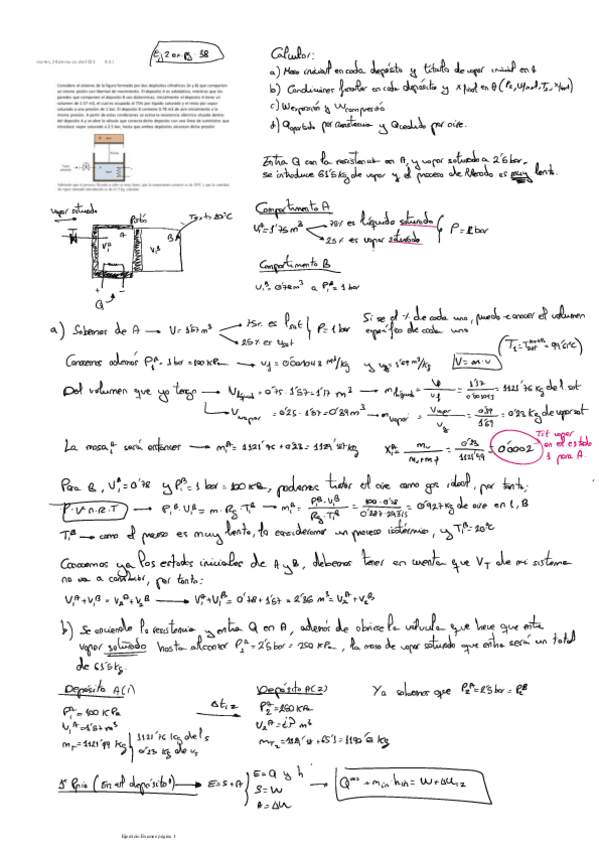 Ej 2 en pg: 38
Considere el sistema de la figura formado por dos depósitos cilíndricos (A y B) que comparten
un mismo pistón con libertad de movimiento. El depósito A es adiabático, mientras que las
paredes que componen el depósito B son diatérmicas. Inicialmente el depósito A tiene un
volumen de 1.57 m3, el cual es ocupado al 75% por líquido saturado y el resto por vapor
saturado a una presión de 1 bar. El depósito B contiene 0.78 m3 de aire inicialmente a la
misma presión. A partir de estas condiciones se activa la resistencia eléctrica situada dentro
del depósito A y se abre la válvula que conecta dicho depósito con una línea de suministro que
introduce vapor saturado a 2.5 bar, hasta que ambos depósitos alcanzan dicha presión
Calcular:
a) Masa inicial en cada depósito y título de vapor inicial en 1
b) Condiciones finales en cada depósito y
c) Wexpansión y Wcompresión
d) Qaportado por resistencia y Qcedido por aire.
Entra Q con la resistencia en A, y vapor saturado a 2'5 bar.
se introduce 61'5 kg de vapor y el proceso de llenado es muy lento.
vapor saturado
Pistón
Text = 20°C
A
B
Q
Compartimento A
75% es líquido saturado
25% es vapor saturado
P = 1 bar
Compartimento B
V₁ᴮ = 0'78 m³ a P₁ᴮ = 1 bar
a) Sabemos de A → V = 1'57 m³
75% es
25% es
P = 1 bar
Si se el % de cada uno, puedo conocer el volumen
específico de cada uno
Conocemos además P₁ᴬ = 1 bar = 100 kPa → vf = 0'001043 m³/kg y vg = 1'69 m³/kg
V = m·v
Del volumen que yo tengo → Vliquid = 0'75 · 1'57 = 1'17 m³ → mliquid = = 1121'76 kg de l. sat
Vvapor = 0'25 · 1'57 = 0'39 m³ → mvapor = = 0'23 kg de vapor sat
La masa será entonces → m₁ᴬ = 1121'76 + 0'23 = 1121'99 kg
= 0'0002
Tit vapor
en el estado
1 para A.
Para B, V₁ᴮ = 0'78 y P₁ᴮ = 1 bar = 100 kPa, podemos tratar el aire como gas ideal, por tanto:
P·V = n·R·T → P₁ᴮ·V₁ᴮ = m·Rg·T₁ᴮ → m₁ᴮ = = 0'927 kg de aire en 1, B
T₁ᴮ → como el proceso es muy lento, lo consideramos un proceso isotérmico, y T₁ᴮ = 20°C
Conocemos ya los estados iniciales de A y B, debemos tener en cuenta que VT de mi sistema
no va a cambiar, por tanto:
V₁ᴬ + V₁ᴮ = V₂ᴬ + V₂ᴮ → V₁ᴬ + V₁ᴮ = 0'78 + 1'57 = 2'35 m³ = V₂ᴬ + V₂ᴮ
b) Se enciende la resistencia y entra Q en A, además de abrirse la válvula que hace que entre
vapor saturado hasta alcanzar P₂ᴬ = 2'5 bar = 250 kPa, la masa de vapor saturado que entra será un total
de 61'5 kg.
Depósito A (1)
P₁ᴬ = 100 kPa
V₁ᴬ = 1'57 m³
mT = 1121'99 kg
1121'76 kg de
0'23 kg de
Depósito A (2)
P₂ᴬ = 250 kPa
V₂ᴬ = ¿? m³
Ya sabemos que P₂ᴬ = 2'5 bar = P₂ᴮ
1º Ppio (En el depósito A) → E = S + A
E = Q y h
S = W
A = ΔU
Ejercicio Examen página 1